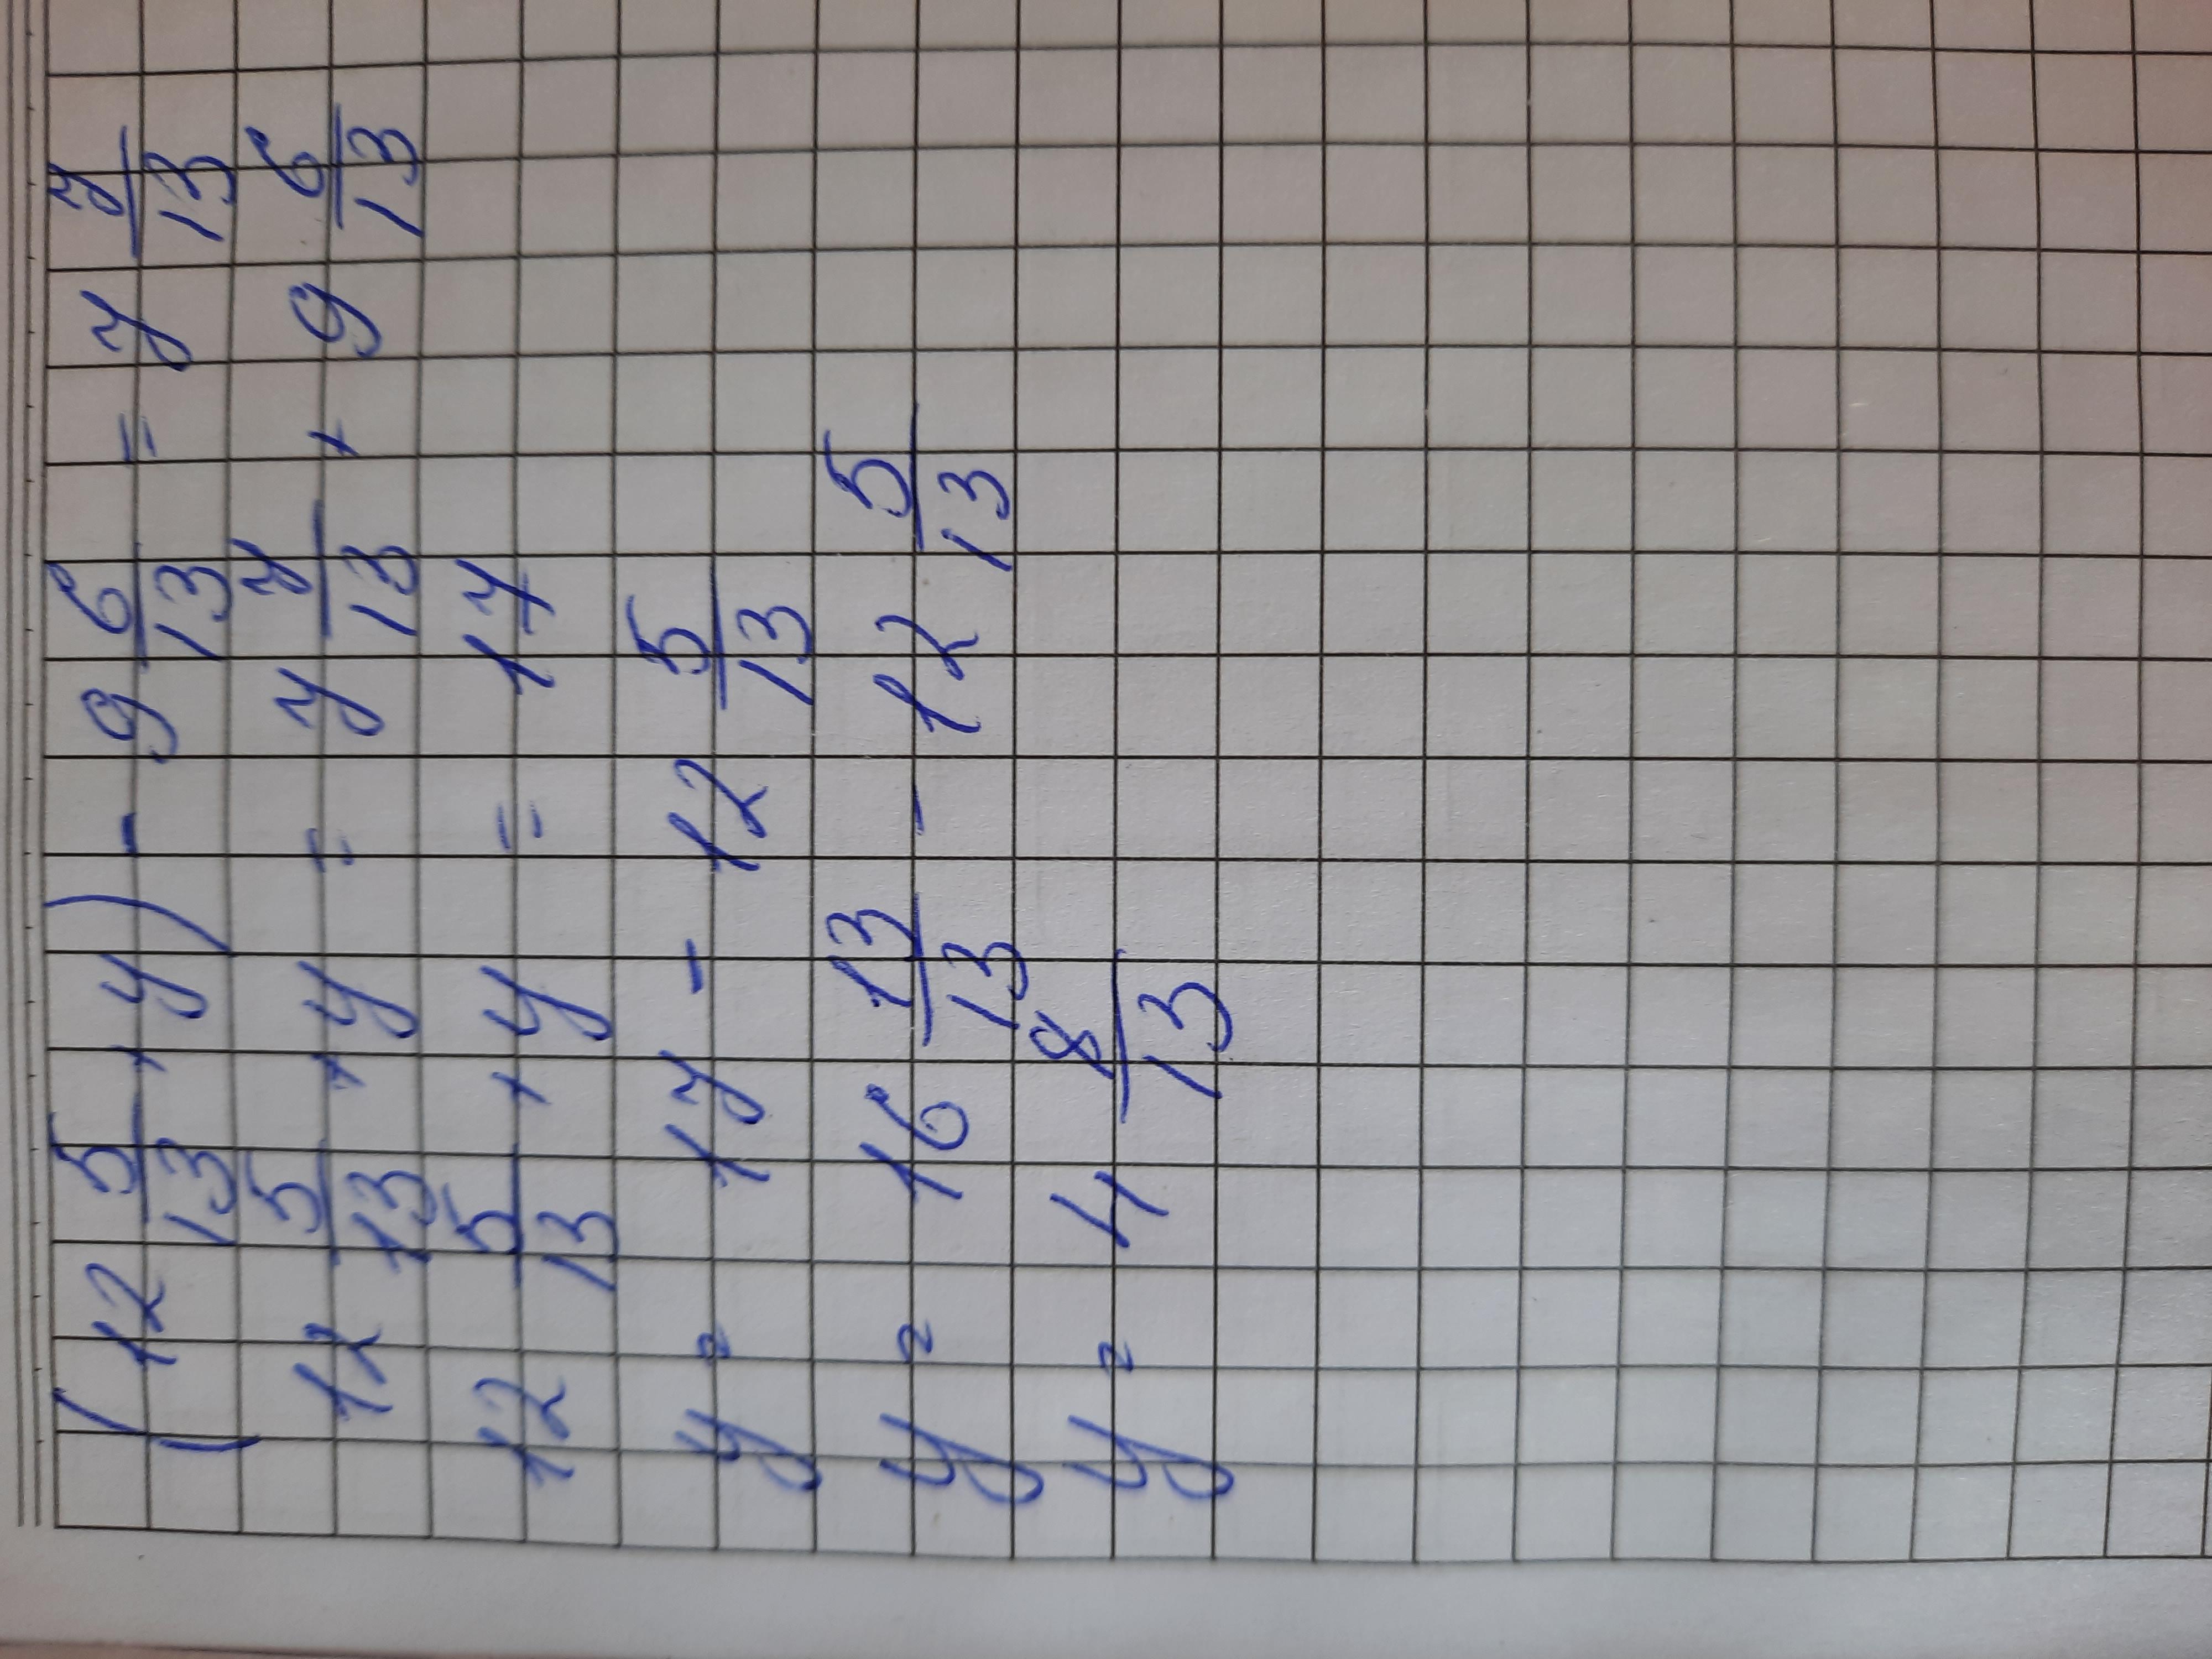 (12 5/13 + y) - 9 6/13 = 7 7/13
12 5/13 + y = 7 7/13 + 9 6/13
12 5/13 + y = 17
y = 17 - 12 5/13
y = 16 13/13 - 12 5/13
y = 4 8/13